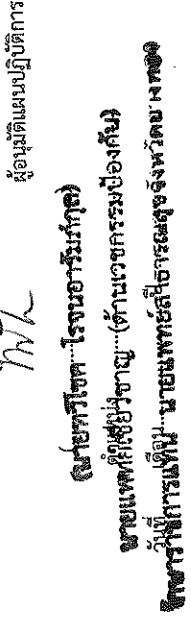 ผู้อนุมัติแผนปฏิบัติการ
(นายทวีโชค โรจนอารัมภ์กุล)
ตำแหน่ง
นายแพทย์เชี่ยวชาญ (ด้านเวชกรรมป้องกัน)
วันที่ เดือน
รักษาราชการแทน นายแพทย์สาธารณสุขจังหวัดอ่างทอง